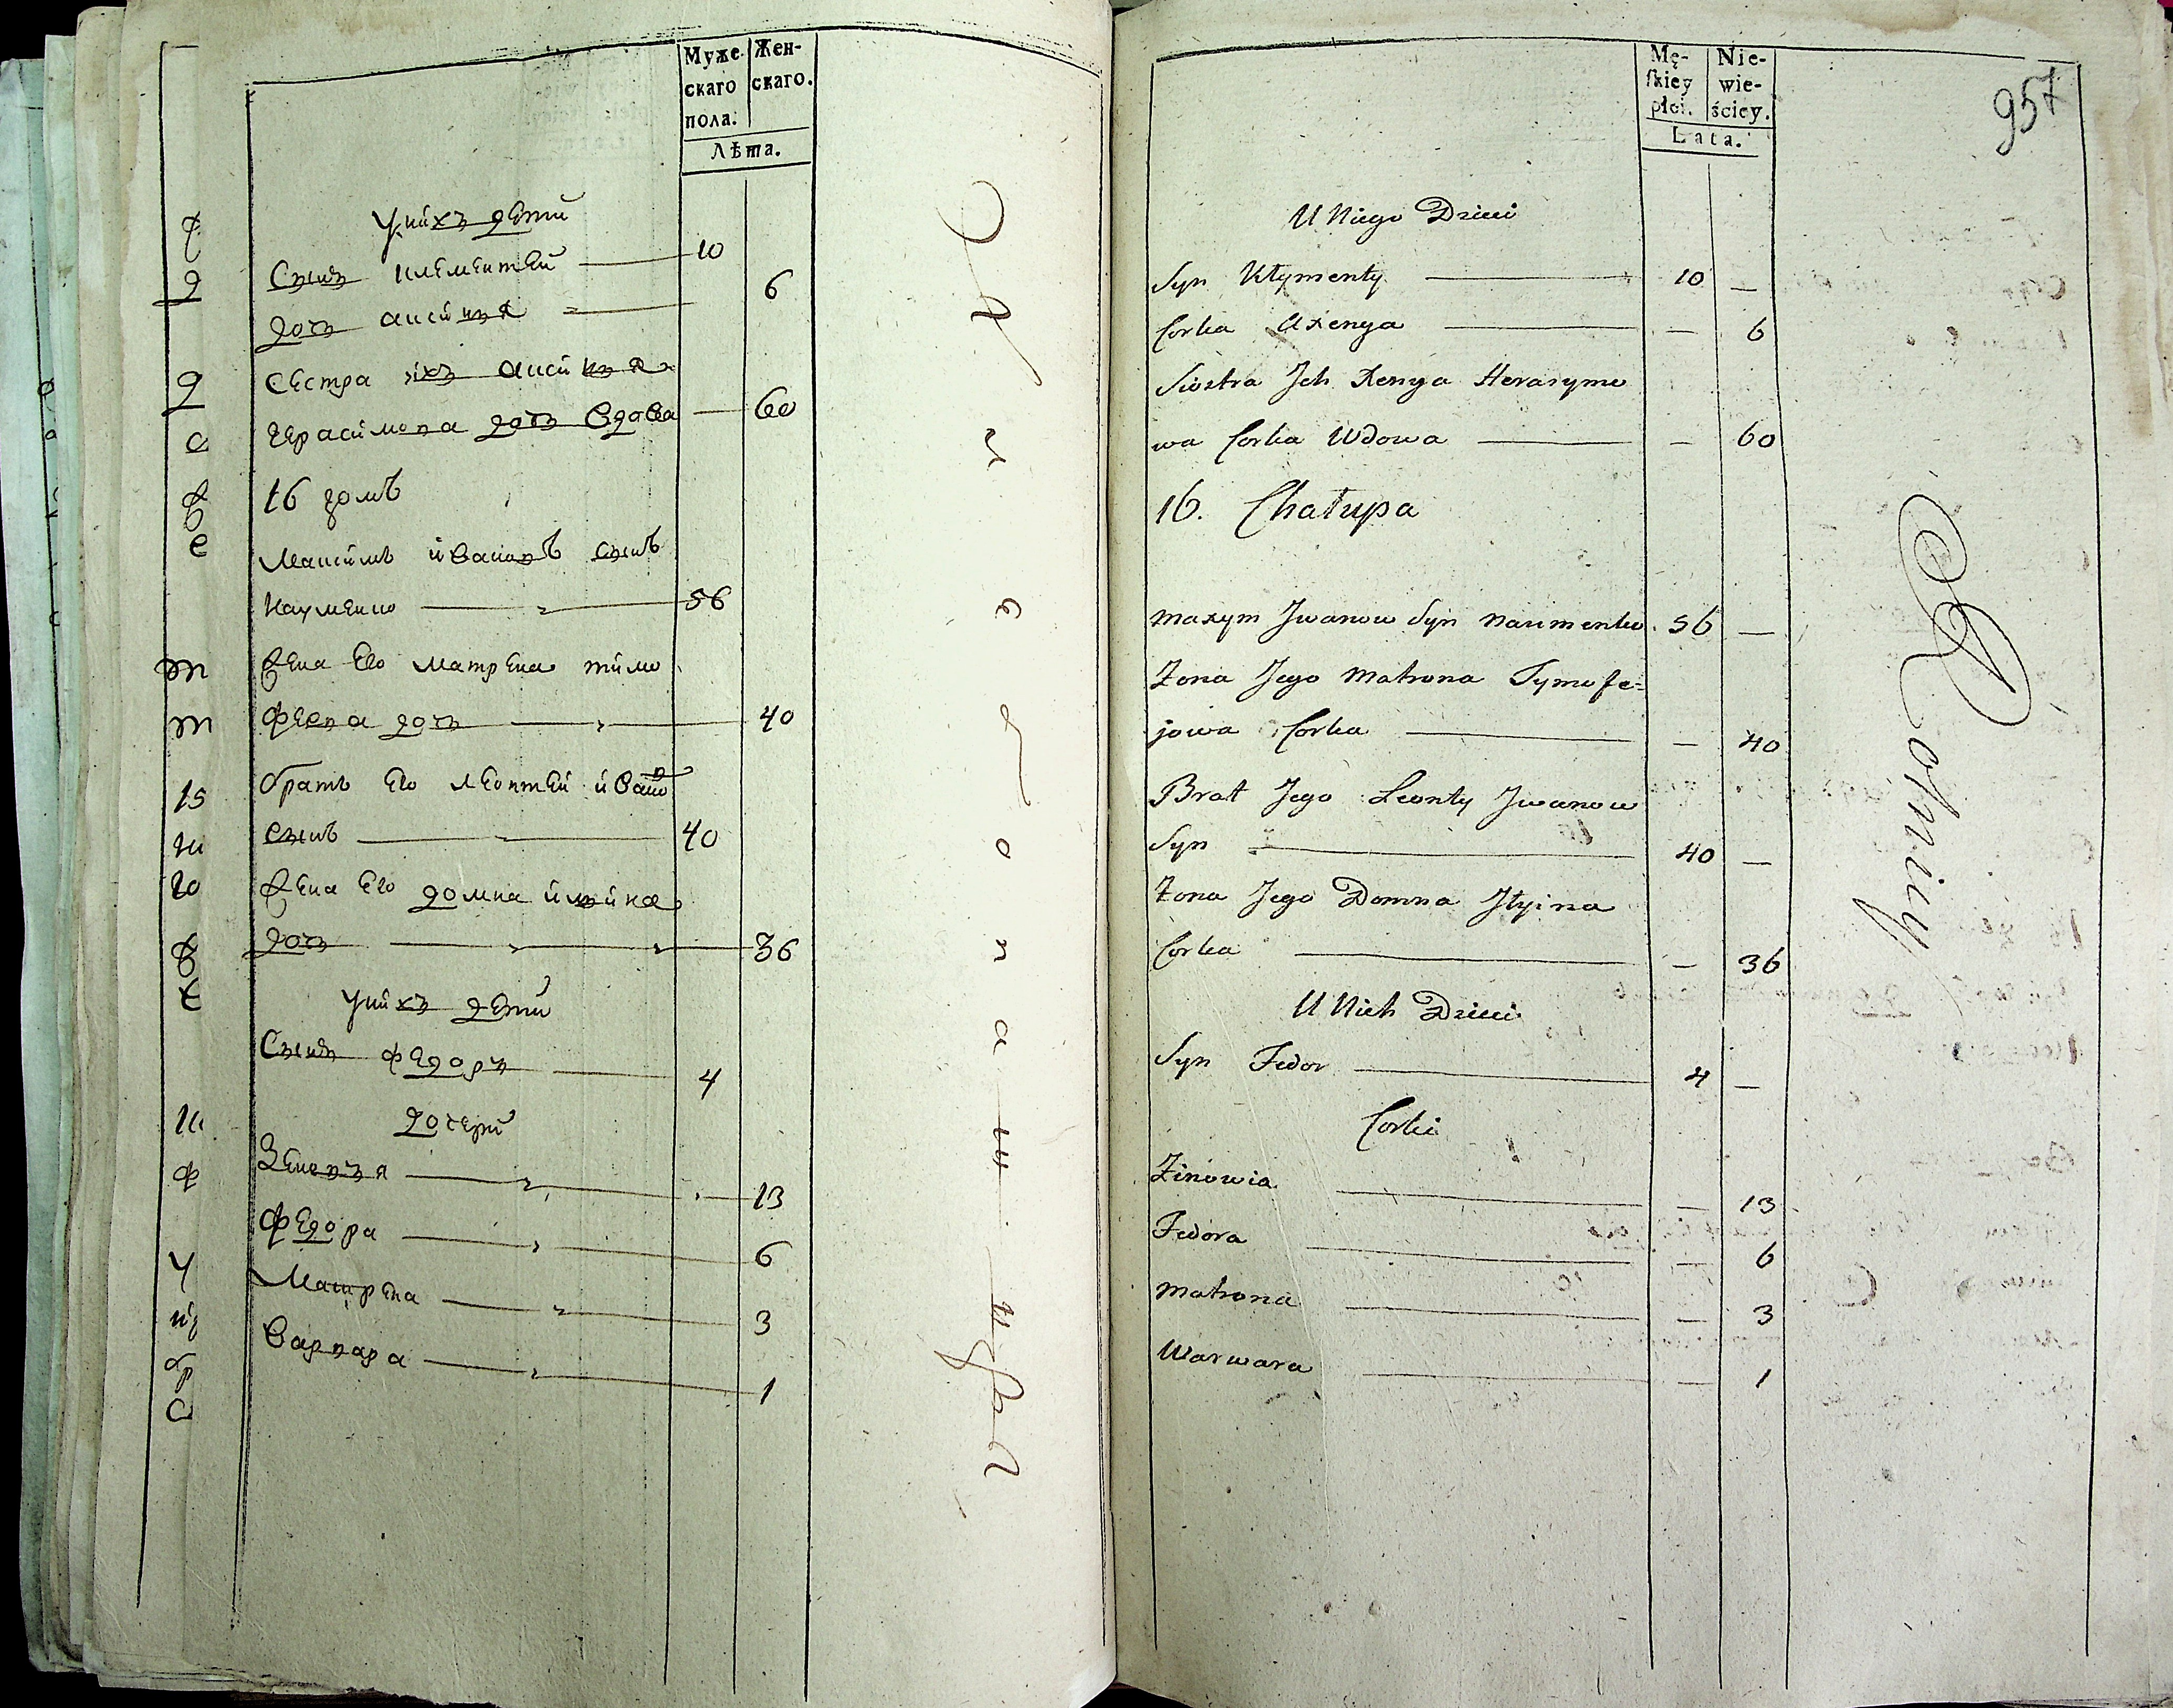 Муже-
скаго
пола.
Жен-
скаго.
Лѣта.
У нихъ дети
Сынъ Климентей 10
дочъ Аксинъя 6
Сестра ихъ Аксинъя
Герасимова дочъ вдова 60
16 домъ
Максимъ Ивановъ сынъ
Науменко 56
Жена Его Матрена Тимо
феева дочъ 40
братъ Его Леонтей Ивановъ
сынъ 40
Жена Его Домна Илъина
дочъ 36
У нихъ дети
Сынъ Федоръ 4
дочери
Зеновъя 13
Федора 6
Матрена 3
Варвара 1
Mę-
skiey
płci.
Nie-
wie-
ściey.
Lata.
957
U Niego Dzieci
Syn Kłymenty 10 —
Corka Axenya — 6
Siostra Jch Xenya Herasymo
wa Corka Wdowa — 60
16. Chałupa
Maxym Jwanow Syn Naumenko 56 —
Zona Jego Matrona Tymofe=
jowa Corka — 40
Brat Jego Leonty Jwanow
Syn 40 —
Zona Jego Domna Jłyina
Corka — 36
U Nich Dzieci
Syn Fedor 4 —
Corki
Zinowia — 13
Fedora — 6
Matrona — 3
Warwara — 1
Rotniy